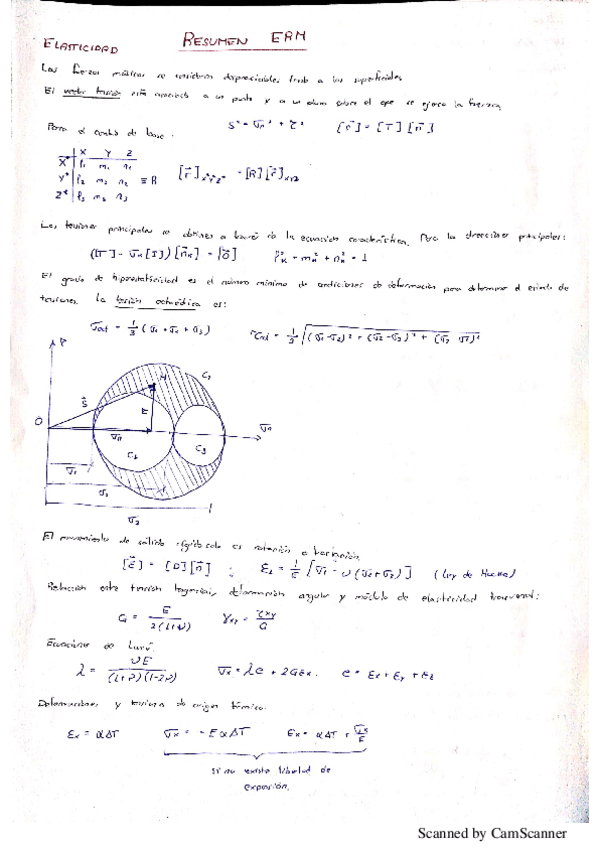 RESUMEN ERM
ELASTICIDAD
Las fuerzas másicas se consideran despreciables frente a las superficiales.
El vector tensión está asociado a un punto y a un plano sobre el que se ejerce la fuerza.
Para el cambio de base:
S² = σn² + τ² [S] = [T][n]
X Y Z
X* l1 m1 n1
Y* l2 m2 n2 ≡ R
Z* l3 m3 n3
[r]x*y*z* = [R][r]xyz
Las tensiones principales se obtienen a través de la ecuación característica. Para las direcciones principales:
([T] - σk[I])[nk] = [0] lk² + mk² + nk² = 1
El grado de hiperestaticidad es el número mínimo de condiciones de deformación para determinar el estado de
tensiones. La tensión octaédrica es:
σoct = 1/3 (σ1 + σ2 + σ3) τoct = 1/3 √(σ1-σ2)² + (σ2-σ3)² + (σ3-σ1)²
C1
S
O
σn
C2
C3
El movimiento de sólido rígido es rotación o traslación
[ε] = [D][n] ; (Ley de Hooke)
Relación entre tensión tangencial, deformación angular y módulo de elasticidad transversal:
G = E / 2(1+ν) γxy = τxy / G
Ecuaciones de Lamé:
λ = νE / (1+ν)(1-2ν) σx = λe + 2Gεx. e = εx + εy + εz
Deformaciones y tensiones de origen térmico:
εx = αΔT σx = -EαΔT εx = αΔT + σx/E
Si no existe libertad de
expansión.
Scanned by CamScanner